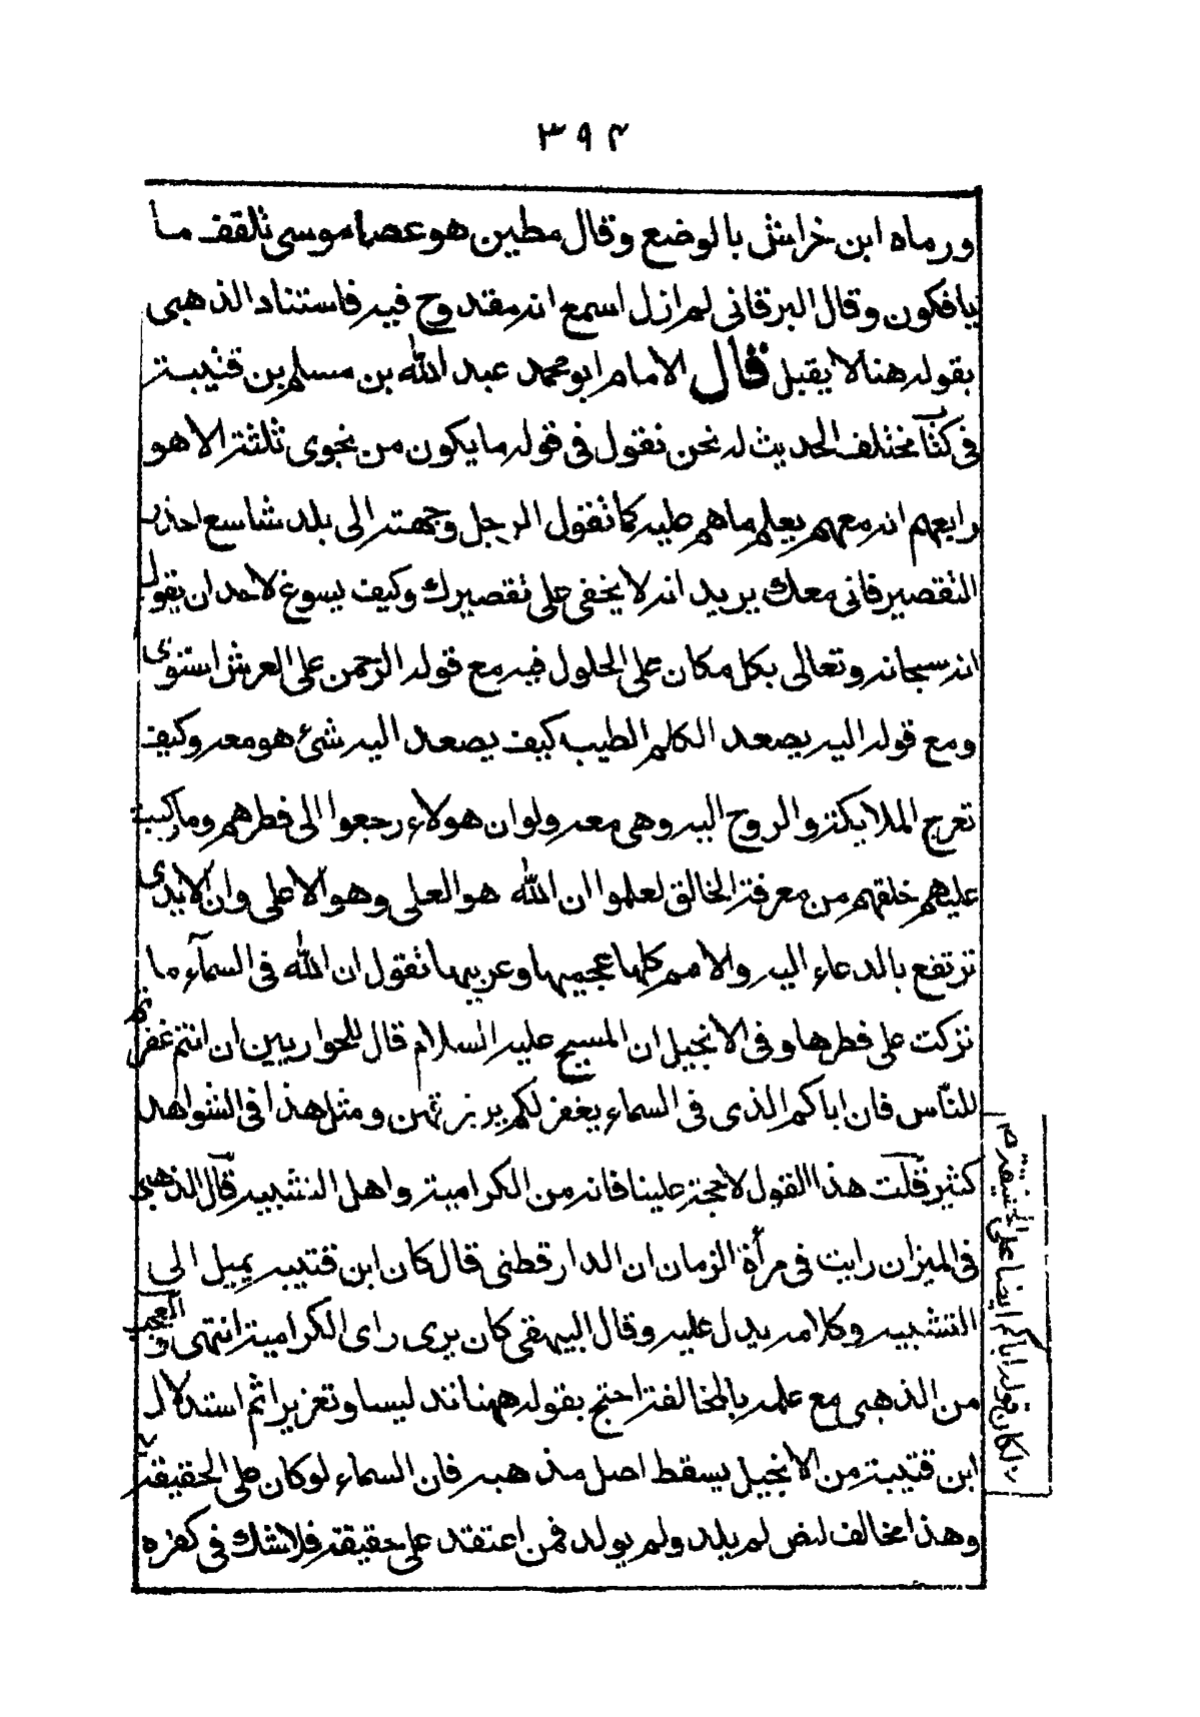 ٣٩٤
ورماه ابن خراش بالوضع وقال مطين هو عصا موسى تلقف ما
يافكون وقال البرقانى لم ازل اسمع انه مقدوح فيه فاستناد الذهبى
بقوله هنا لا يقبل قال الامام ابو محمد عبد الله بن مسلم بن قتيبة
فى كتاب مختلف الحديث له نحن نقول فى قوله ما يكون من نجوى ثلثة الا هو
رابعهم انه معهم يعلم ما هم عليه كما تقول الرجل وجهته الى بلد شاسع احذر
التقصير فانى معك يريد انه لا يخفى على تقصيرك وكيف يسوغ لاحد ان يقول
انه سبحانه وتعالى بكل مكان على الحلول فيه مع قوله الرحمن على العرش استوى
ومع قوله اليه يصعد الكلم الطيب كيف يصعد اليه شئ هو معه وكيف
تعرج الملايكة والروح اليه وهى معه ولو ان هولاء رجعوا الى فطرهم وما ركبت
عليهم خلقهم من معرفة الخالق لعلموا ان الله هو العلى وهو الاعلى وان الايدى
ترتفع بالدعاء اليه والامم كلها عجميها وعربيها تقول ان الله فى السمآء ما
تركت على فطرها وفى الانجيل ان المسيح عليه السلام قال للحواريين ان انتم غفرتم
للنّاس فان اباكم الذى فى السماء يغفر لكم ومثل هذا فى الشواهد
كثير قلت هذا القول لا حجة علينا فانه من الكرامية واهل التشبيه قال الذهبى
فى الميزان رايت فى مرأة الزمان ان الدار قطنى قال كان ابن قتيبه يميل الى
التشبيه وكلامه يدل عليه وقال البيهقى كان يرى راى الكرامية انتهى والعجب
من الذهبى مع علمه بالمخالفة احتج بقوله ههنا تدليسا وتعزيرا ثم استدلال
ابن قتيبة من الانجيل يسقط اصل مذهبه فان السماء لو كان على الحقيقة
وهذا مخالف لنص لم يلد ولم يولد فمن اعتقد على حقيقة فلا شك فى كفره
لكان قوله اباكم ايضا على الحقيقة